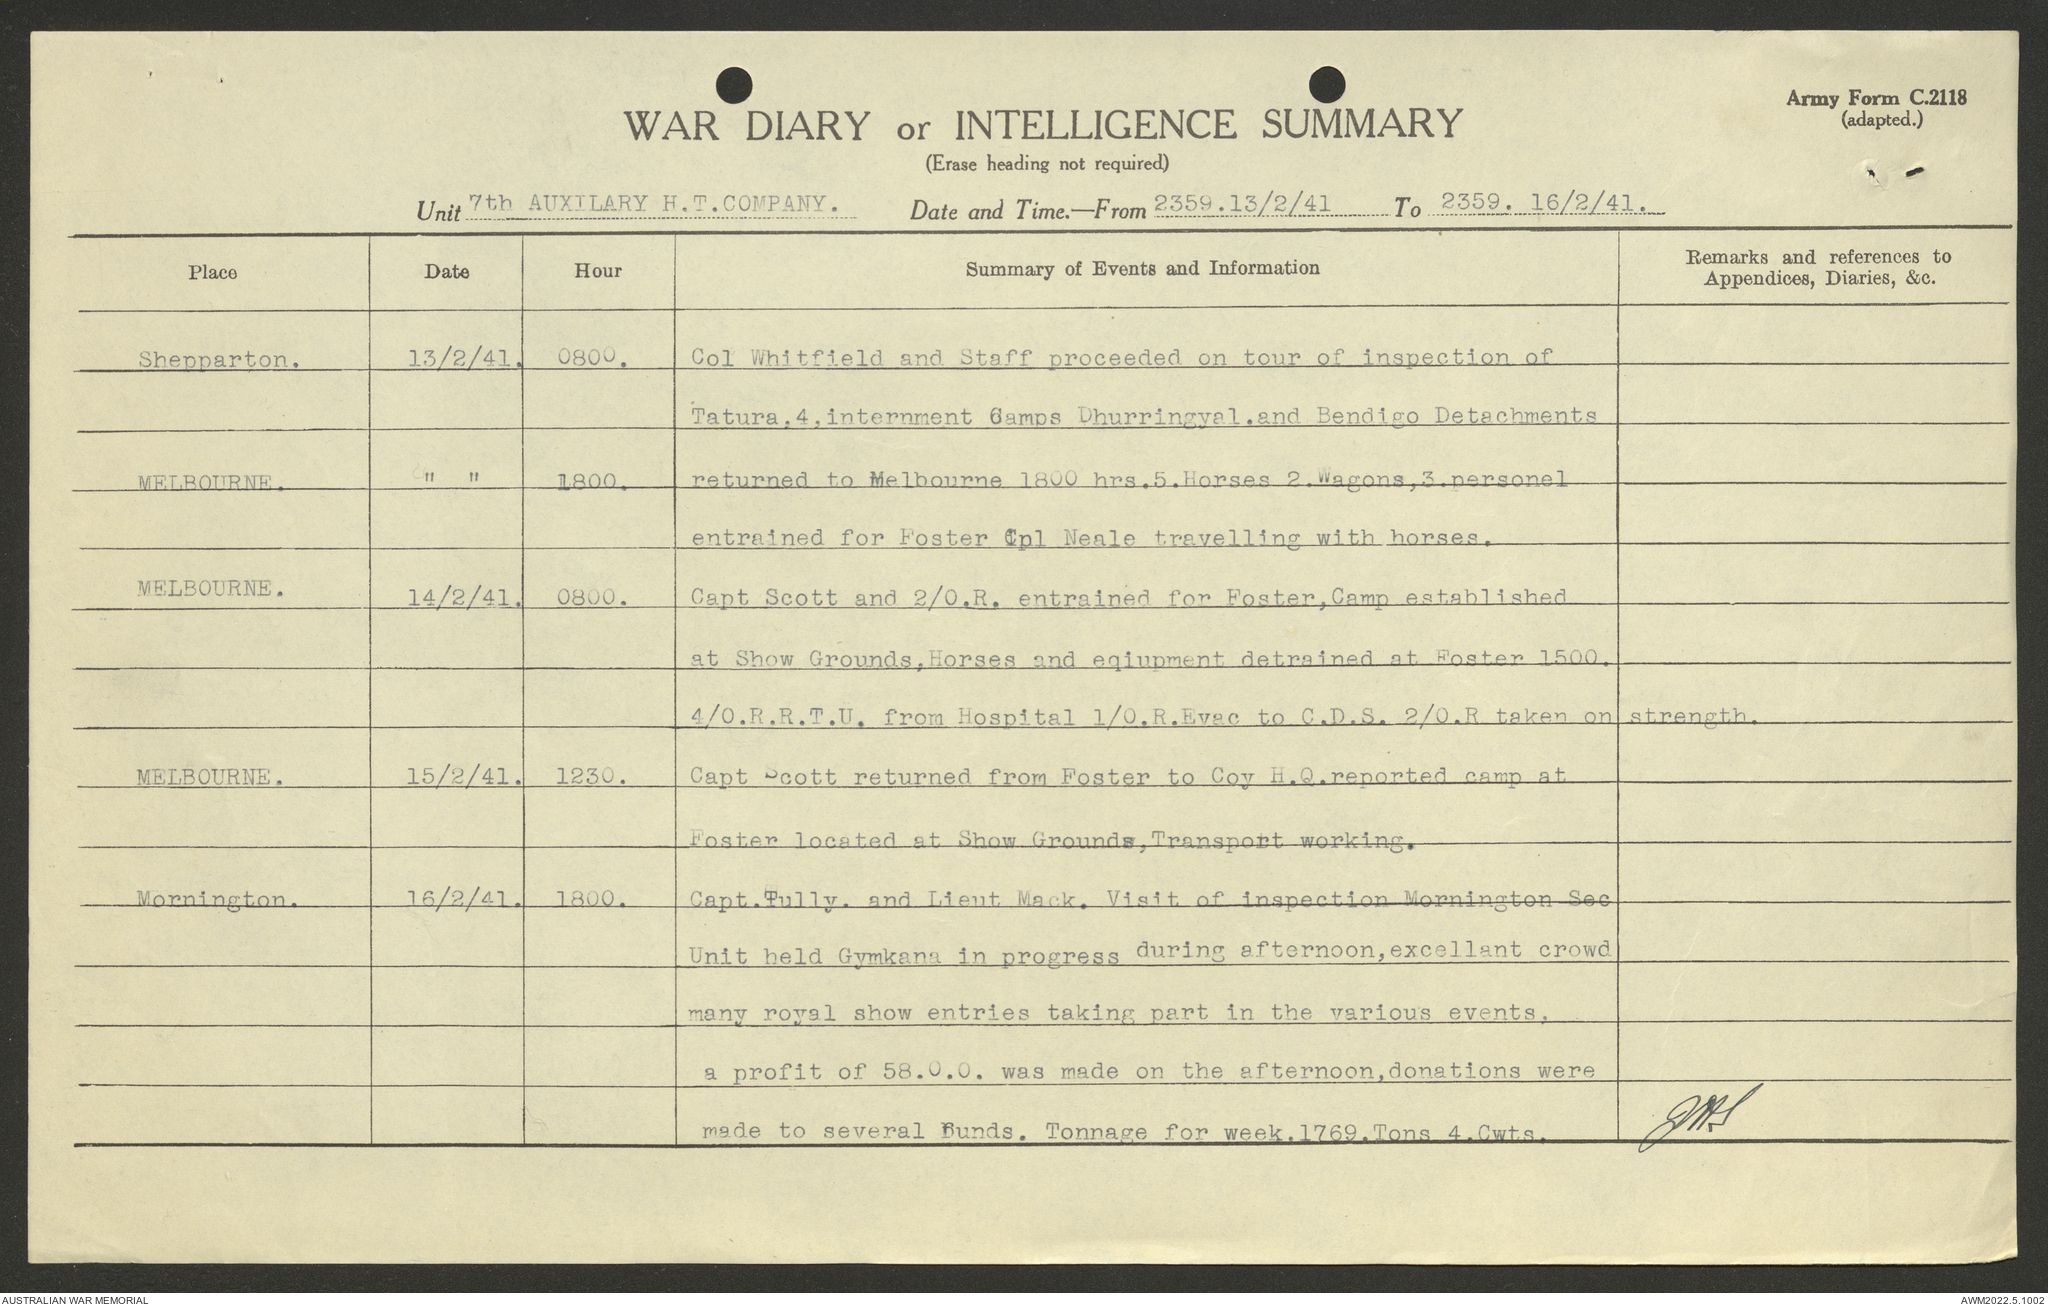 Army Form C.2118
(adapted.)
WAR DIARY or INTELLIGENCE SUMMARY
(Erase heading not required)
Unit 7th AUXILARY H.T.COMPANY. Date and Time.—From 2359.13/2/41 To 2359. 16/2/41.
Place Date Hour Summary of Events and Information Remarks and references to Appendices, Diaries, &c.
Shepparton. 13/2/41. 0800. Col Whitfield and Staff proceeded on tour of inspection of
Tatura,4,internment Camps Dhurringyal.and Bendigo Detachments
MELBOURNE. " " 1800. returned to Melbourne 1800 hrs.5.Horses 2.Wagons,3.personel
entrained for Foster Cpl Neale travelling with horses.
MELBOURNE. 14/2/41. 0800. Capt Scott and 2/O.R. entrained for Foster,Camp established
at Show Grounds,Horses and eqiupment detrained at Foster 1500.
4/O.R.R.T.U. from Hospital 1/O.R.Evac to C.D.S. 2/O.R taken on strength.
MELBOURNE. 15/2/41. 1230. Capt Scott returned from Foster to Coy H.Q.reported camp at
Foster located at Show Grounds,Transport working.
Mornington. 16/2/41. 1800. Capt.Tully. and Lieut Mack. Visit of inspection Mornington Sec
Unit held Gymkana in progress during afternoon,excellant crowd
many royal show entries taking part in the various events.
a profit of 58.0.0. was made on the afternoon,donations were
made to several funds. Tonnage for week.1769.Tons 4.Cwts.
AUSTRALIAN WAR MEMORIAL AWM2022.5.1002